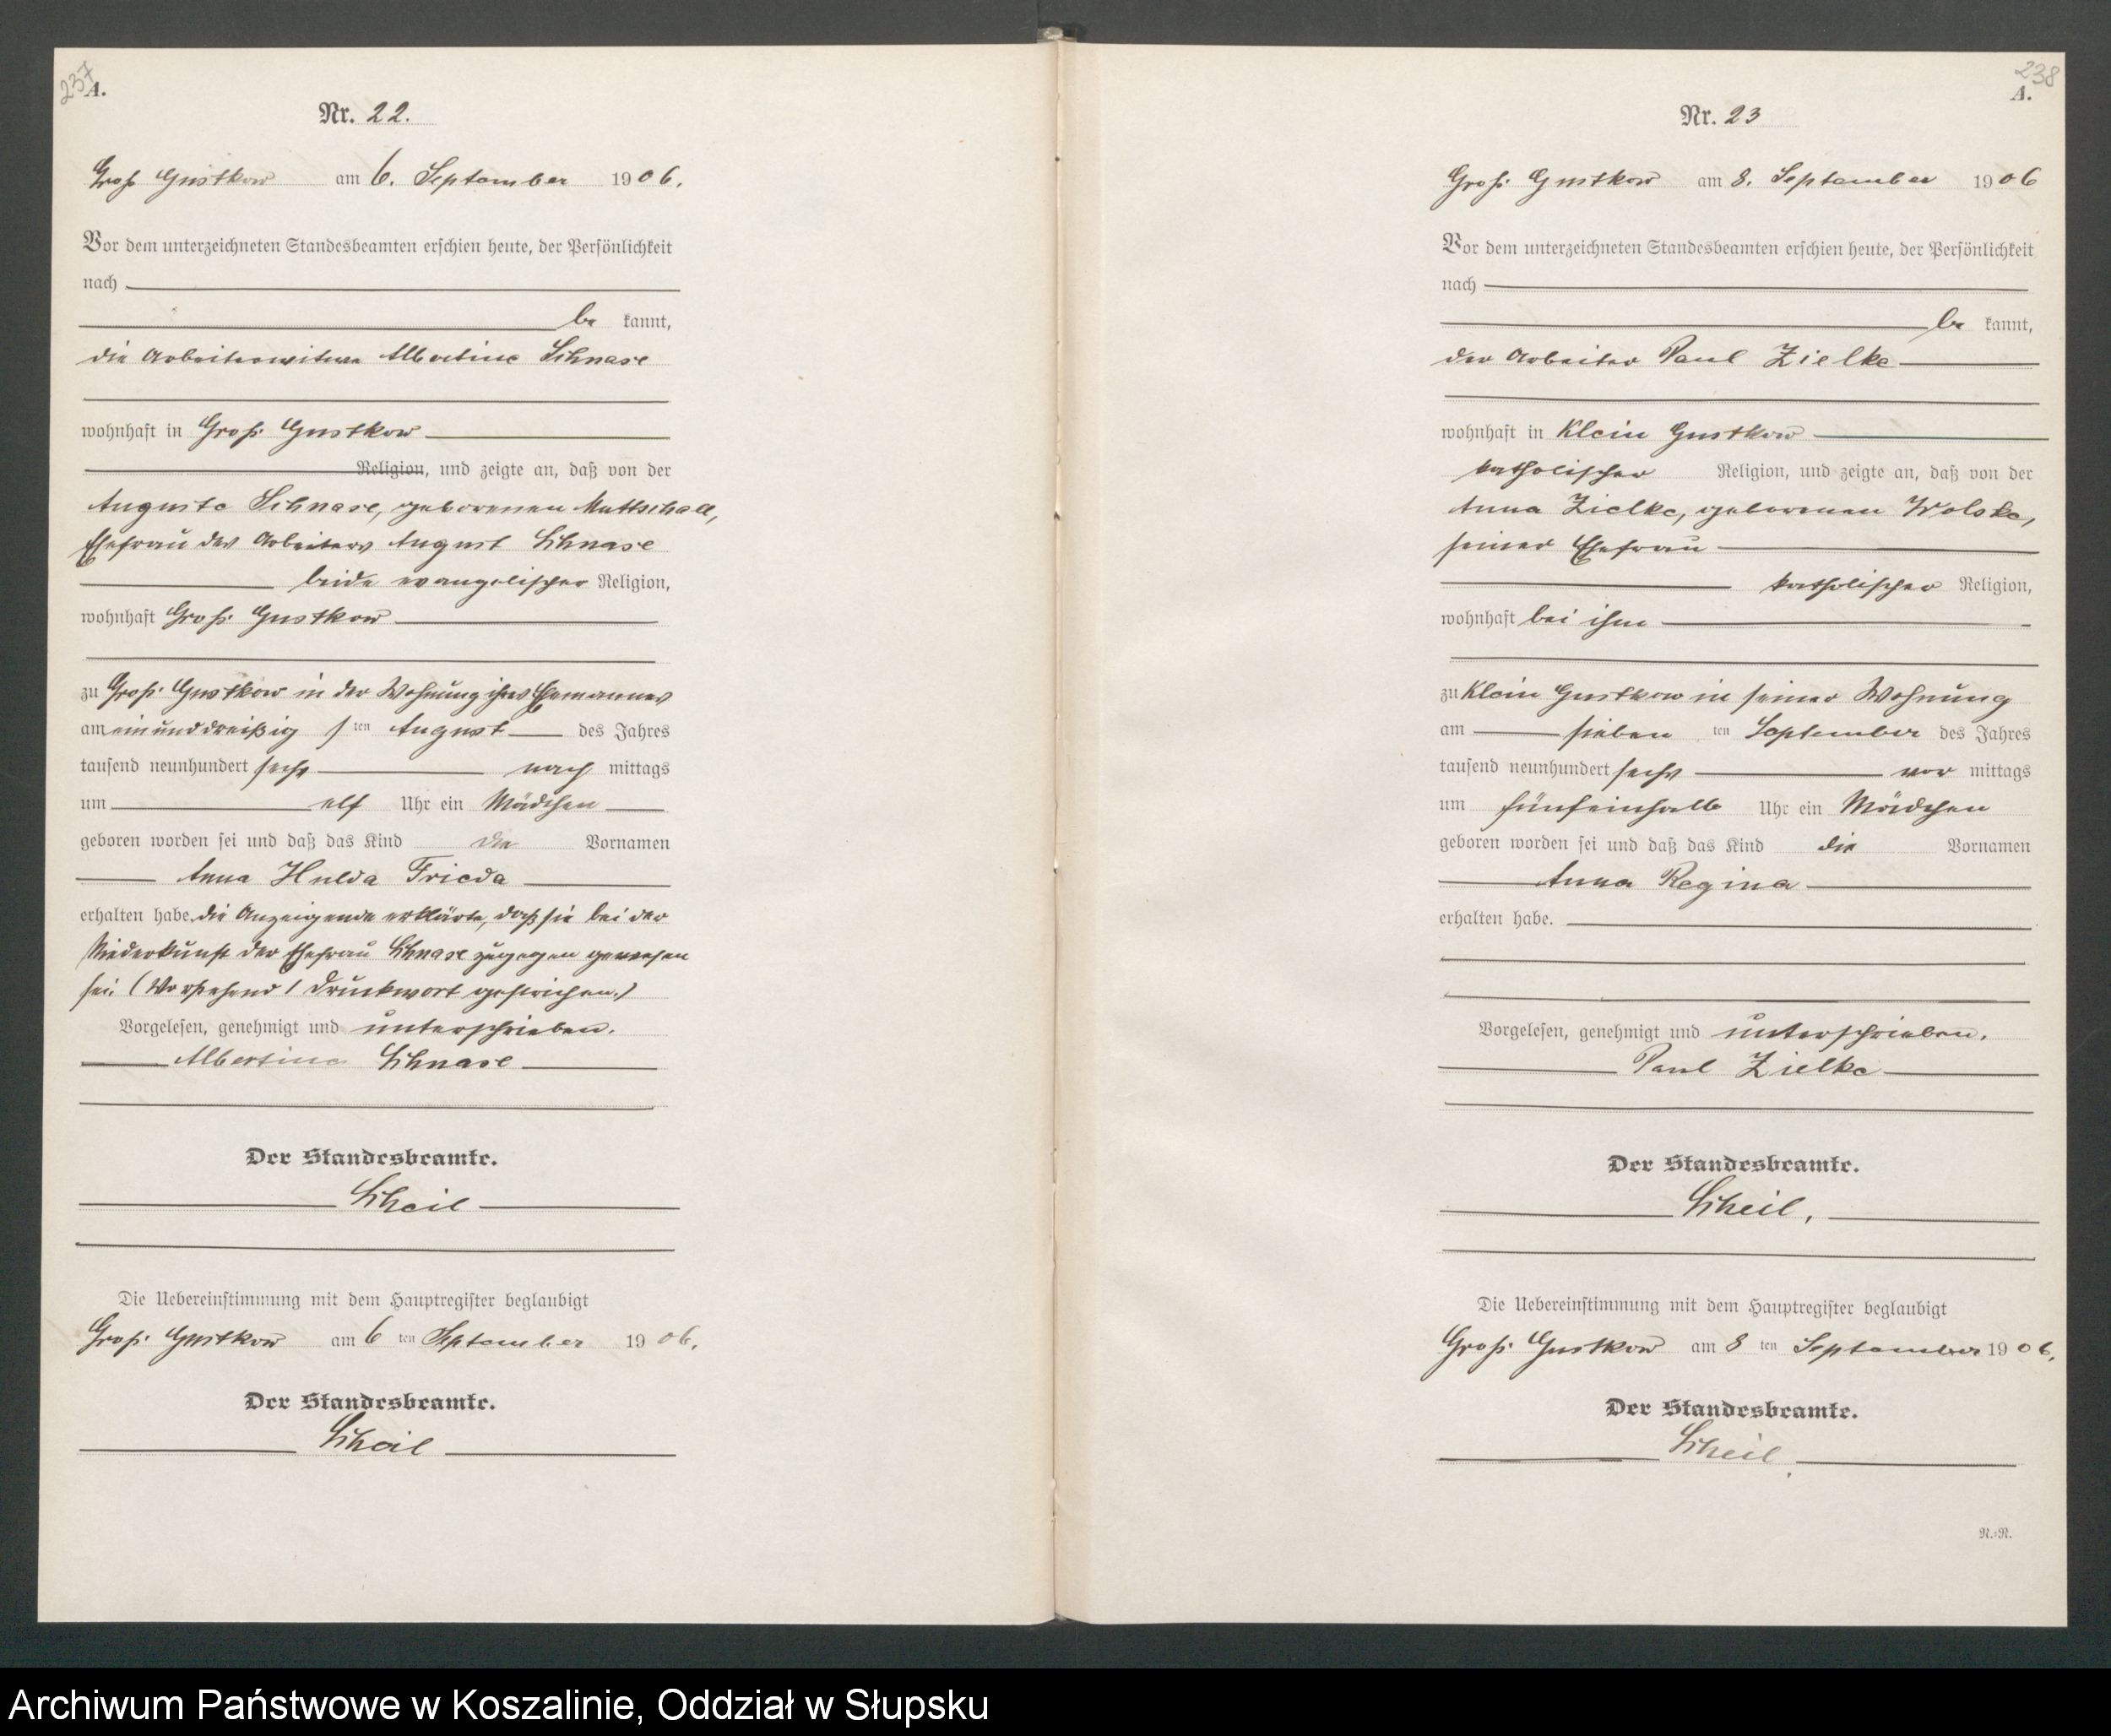 237
A.
Nr. 22.
Groß Gustkow am 6. September 1906.
Vor dem unterzeichneten Standesbeamten erschien heute, der Persönlichkeit
nach
be kannt,
die Arbeiterwitwe Albertine Schnase
wohnhaft in Groß Gustkow
Religion, und zeigte an, daß von der
Auguste Schnase, geborenen Muttschall,
Ehefrau des Arbeiters August Schnase
beide evangelischer Religion,
wohnhaft Groß Gustkow
zu Groß Gustkow in der Wohnung ihres Ehemannes
am einunddreißig sten August des Jahres
tausend neunhundert sechs nach mittags
um elf Uhr ein Mädchen
geboren worden sei und daß das Kind die Vornamen
Anna Hulda Frieda
erhalten habe. die Anzeigende erklärte, daß sie bei der
Niederkunft der Ehefrau Schnase zugegen gewesen
sei. (Vorstehend 1 Druckwort gestrichen.)
Vorgelesen, genehmigt und unterschrieben.
Albertine Schnase
Der Standesbeamte.
Scheil
Die Uebereinstimmung mit dem Hauptregister beglaubigt
Groß Gustkow am 6 ten September 1906.
Der Standesbeamte.
Scheil
238
A.
Nr. 23
Groß Gustkow am 8. September 1906
Vor dem unterzeichneten Standesbeamten erschien heute, der Persönlichkeit
nach
be kannt,
der Arbeiter Paul Zielke
wohnhaft in Klein Gustkow
katholischer Religion, und zeigte an, daß von der
Anna Zielke, geborenen Wolske,
seiner Ehefrau
katholischer Religion,
wohnhaft bei ihm
zu Klein Gustkow in seiner Wohnung
am sieben ten September des Jahres
tausend neunhundert sechs vor mittags
um fünfeinhalb Uhr ein Mädchen
geboren worden sei und daß das Kind die Vornamen
Anna Regina
erhalten habe.
Vorgelesen, genehmigt und unterschrieben.
Paul Zielke
Der Standesbeamte.
Scheil.
Die Uebereinstimmung mit dem Hauptregister beglaubigt
Groß Gustkow am 8 ten September 1906.
Der Standesbeamte.
Scheil.
R.=R.
Archiwum Państwowe w Koszalinie, Oddział w Słupsku